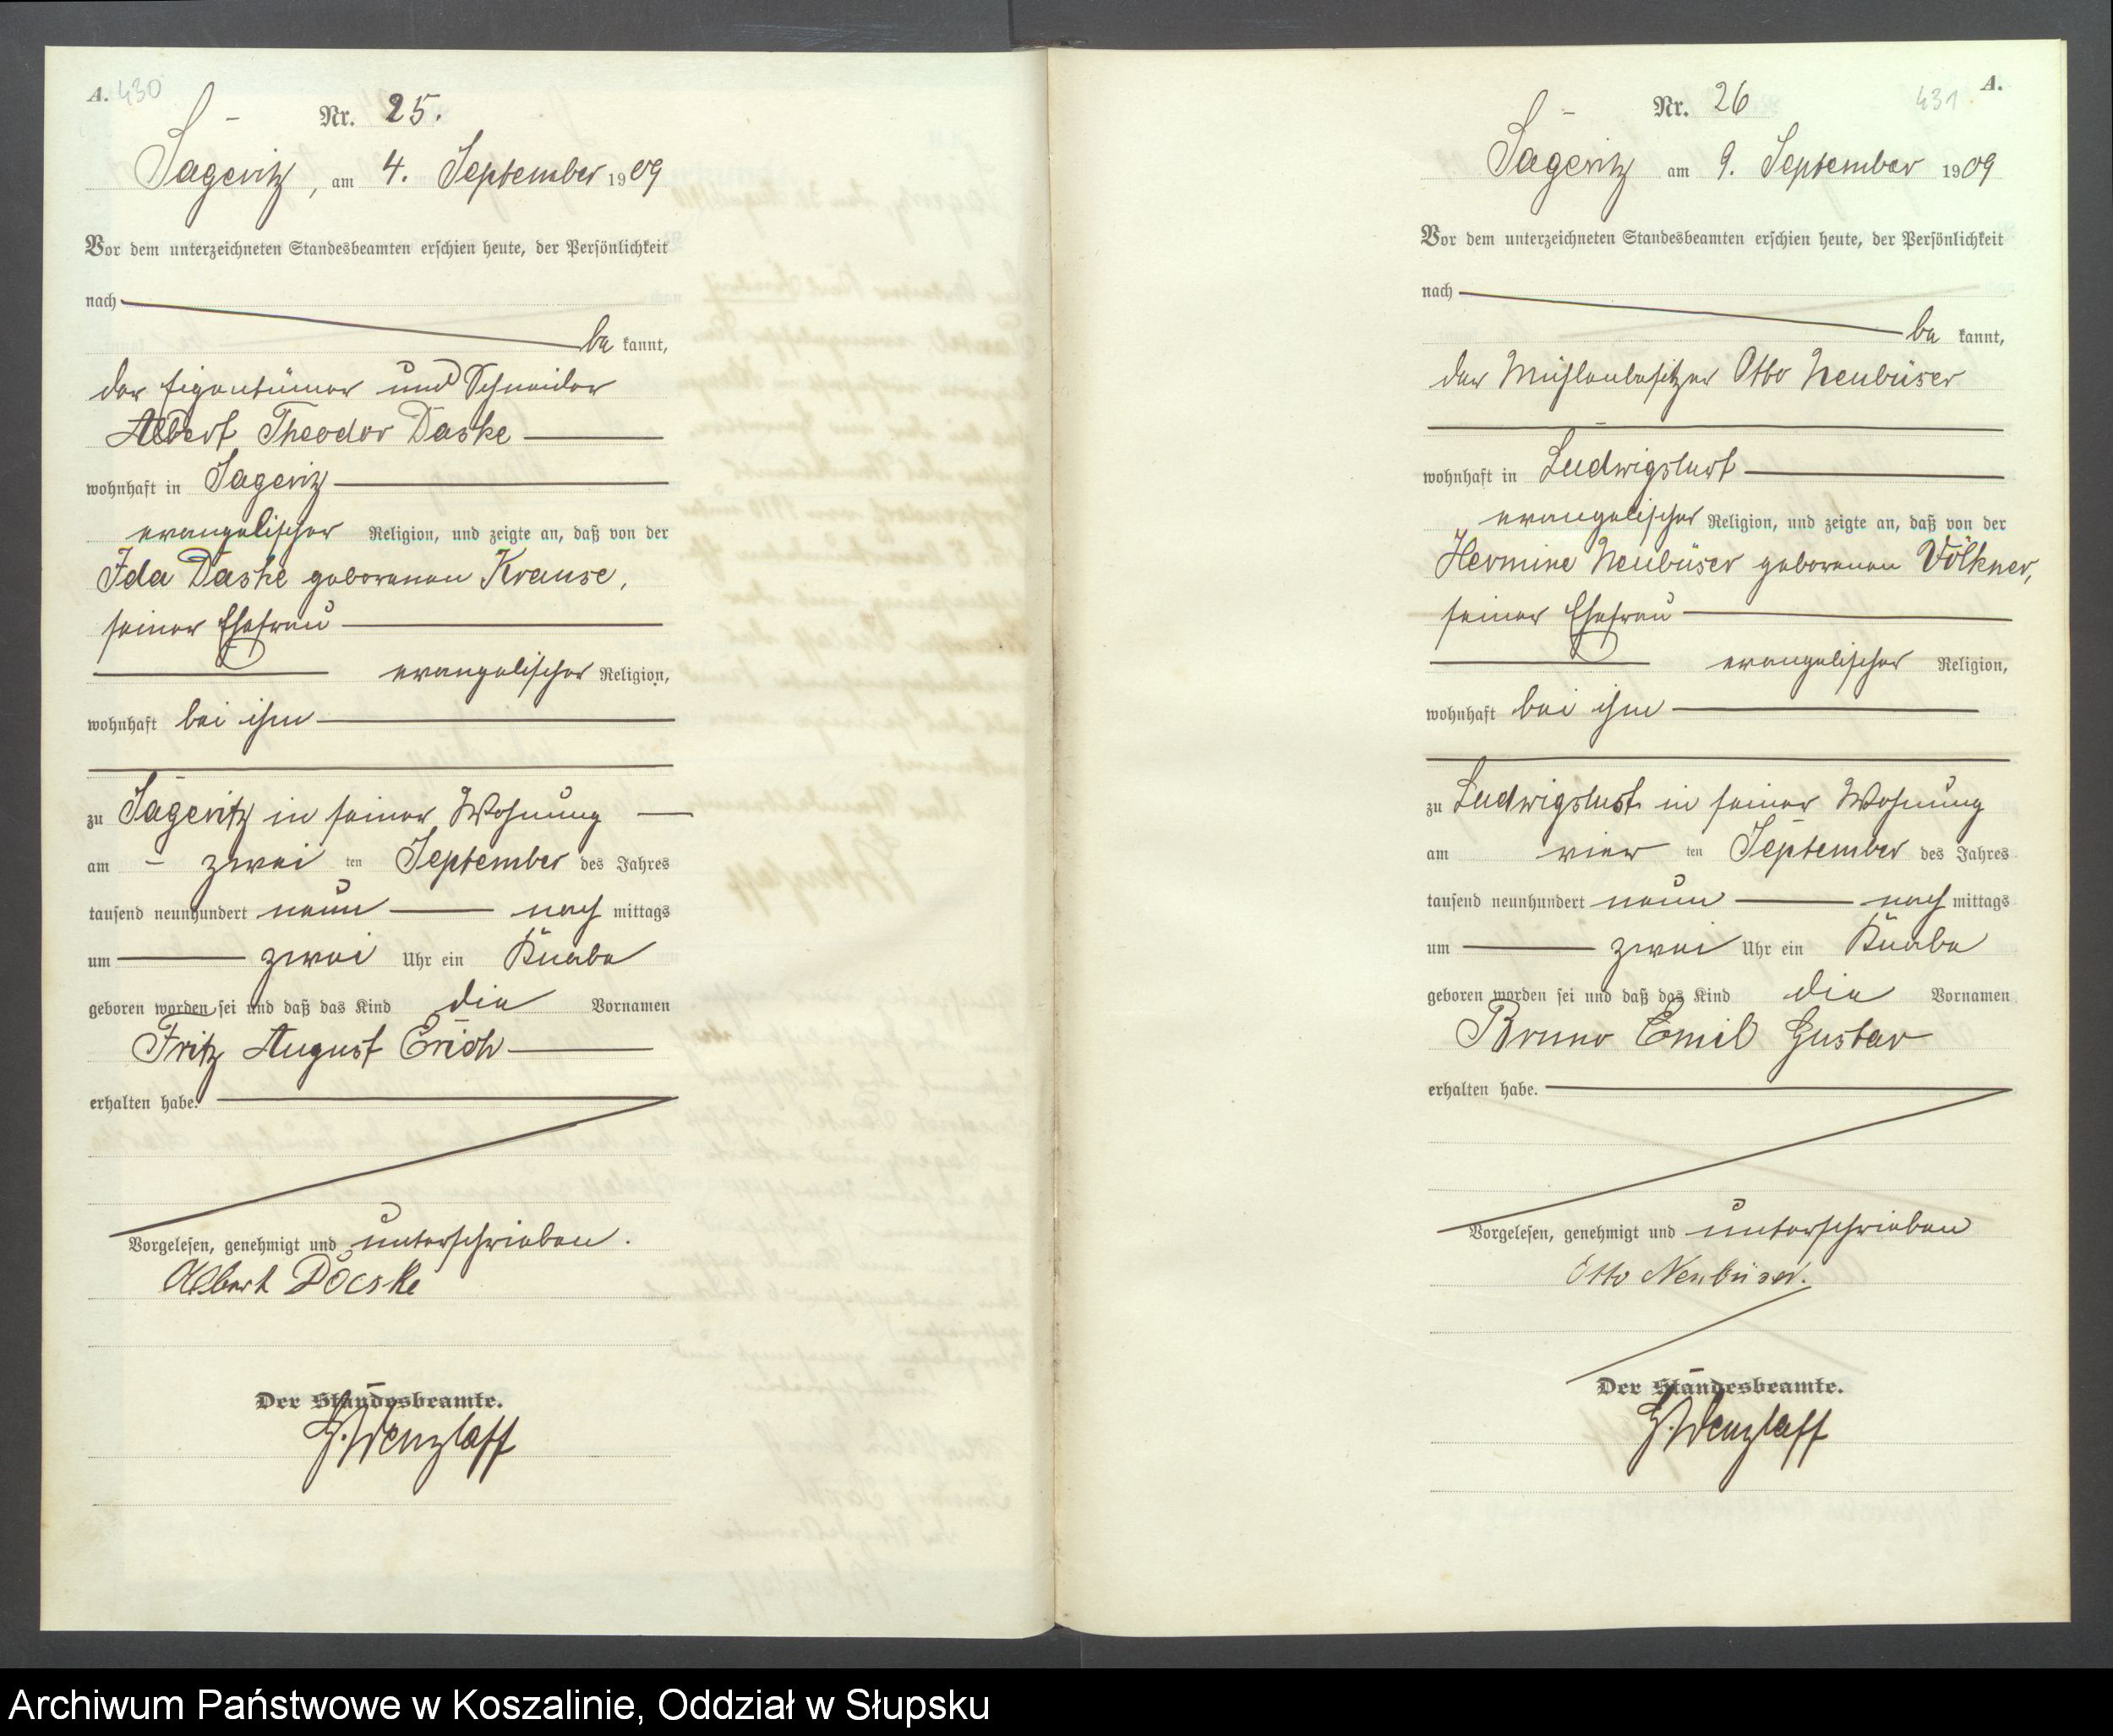 A. 430
Nr. 25.
Sageritz, am 4. September 1909
Vor dem unterzeichneten Standesbeamten erschien heute, der Persönlichkeit
nach
be kannt,
der Eigentümer und Schneider
Albert Theodor Daske
wohnhaft in Sageritz
evangelischer Religion, und zeigte an, daß von der
Ida Daske geborenen Krause,
seiner Ehefrau
evangelischer Religion,
wohnhaft bei ihm
zu Sageritz in seiner Wohnung
am zwei ten September des Jahres
tausend neunhundert neun nach mittags
um zwei Uhr ein Knabe
geboren worden sei und daß das Kind die Vornamen
Fritz August Erich
erhalten habe.
Vorgelesen, genehmigt und unterschrieben.
Albert Daske
Der Standesbeamte.
Wenzlaff
A.
431
Nr. 26
Sageritz am 9. September 1909
Vor dem unterzeichneten Standesbeamten erschien heute, der Persönlichkeit
nach
be kannt,
der Mühlenbesitzer Otto Neubüser
wohnhaft in Ludwigslust
evangelischer Religion, und zeigte an, daß von der
Hermine Neubüser geborenen Völkner,
seiner Ehefrau
evangelischer Religion,
wohnhaft bei ihm
zu Ludwigslust in seiner Wohnung
am vier ten September des Jahres
tausend neunhundert neun nach mittags
um zwei Uhr ein Knabe
geboren worden sei und daß das Kind die Vornamen
Bruno Emil Gustav
erhalten habe.
Vorgelesen, genehmigt und unterschrieben
Otto Neubüser.
Der Standesbeamte.
Wenzlaff
Archiwum Państwowe w Koszalinie, Oddział w Słupsku